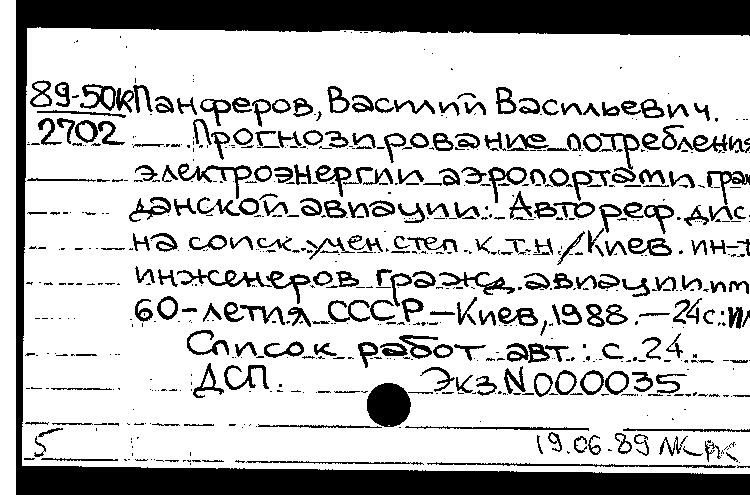 89-50к Панферов, Василий Васильевич.
2702 Прогнозирование потребления
электроэнергии аэропортами граж
данской авиации: Автореф. дис.
на соиск. учен. степ. к.т.н./Киев. ин-т
инженеров гражд. авиации им.
60-летия СССР.-Киев, 1988.-24с.:ил
Список работ авт.: с. 24.
ДСП. Экз. N 000035
5 19.06.89